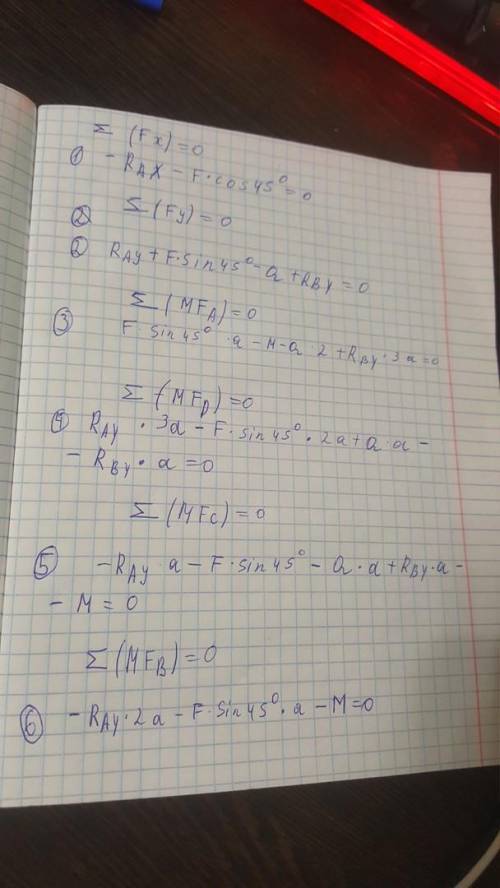 Σ (Fx) = 0
① - RAX - F·cos45° = 0
② Σ (Fy) = 0
② RAY + F·sin45° - Q + RBY = 0
Σ (MFA) = 0
③ F·sin45°·a - M - Q·2 + RBY·3a = 0
Σ (MFD) = 0
④ RAY·3a - F·sin45°·2a + Q·a -
- RBY·a = 0
Σ (MFC) = 0
⑤ - RAY·a - F·sin45° - Q·a + RBY·a -
- M = 0
Σ (MFB) = 0
⑥ - RAY·2a - F·sin45°·a - M = 0